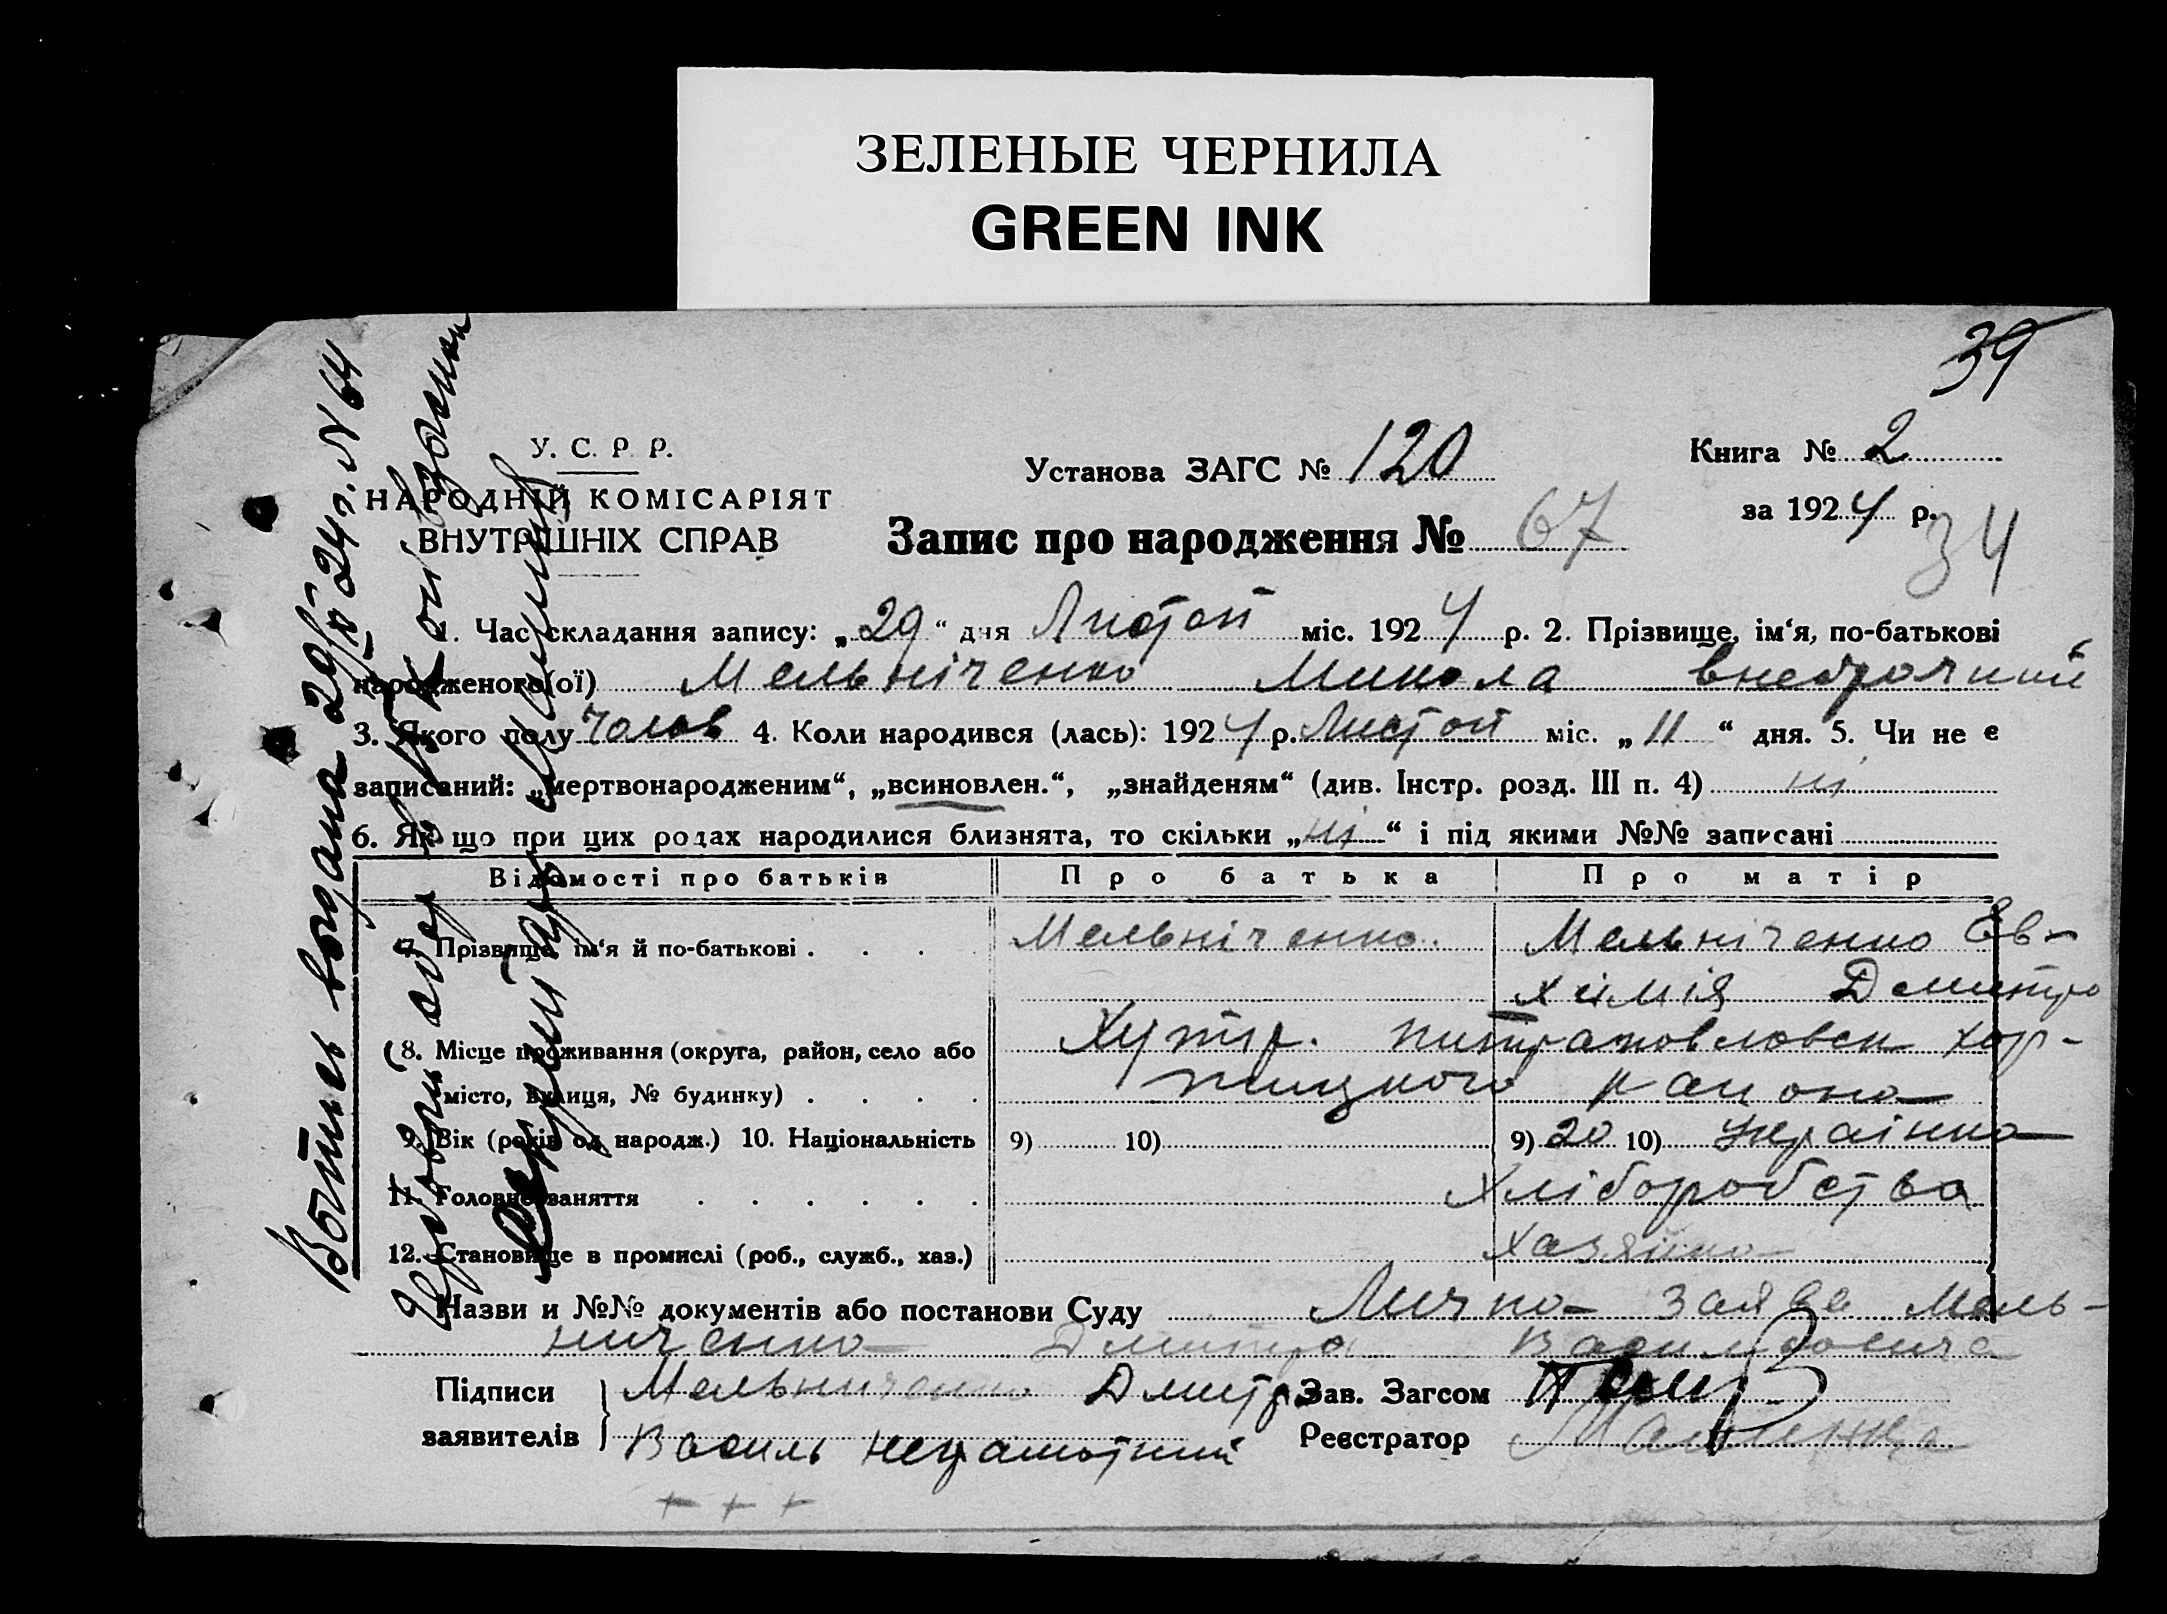 ЗЕЛЕНЫЕ ЧЕРНИЛА
GREEN INK
39
У. С. Р. Р.
НАРОДНІЙ КОМІСАРІЯТ
ВНУТРІШНІХ СПРАВ
Установа ЗАГС № 120
Книга № 2
за 1924 р.
34
Запис про народження № 67
1. Час складання запису: „29“ дня Листоп міс. 1924 р. 2. Прізвище, ім‘я, по-батькові
народженого(ої) Мельніченко Микола
3. Якого полу чолов 4. Коли народився (лась): 1924 р. Листоп міс. „11“ дня. 5. Чи не є
записаний: „мертвонародженим“, „всиновлен.“, „знайденям“ (див. Інстр. розд. III п. 4) ні
6. Як що при цих родах народилися близнята, то скільки „ні“ і під якими №№ записані
Відомості про батьків Про батька Про матір
7. Прізвище, ім‘я й по-батькові . . . . Мельніченко. Мельніченко Ев-
химія Дмитро
8. Місце проживання (округа, район, село або Хутір.
місто, вулиця, № будинку) . . . . району
9. Вік (років од народж.) 10. Національність 9) 10) 9) 20 10) Українка
11. Головне заняття . . . . . . Хліборобство
12. Становище в промислі (роб., служб., хаз.) Хазяйка
Назви и №№ документів або постанови Суду Лична заява Мель-
ниченко Дмитра Васильовича
Підписи Мельниченко Дмитр Зав. Загсом
заявителів Василь неграмотний Реєстратор
+ + +
Вотпсь видана 29/XI 24 г. N 64